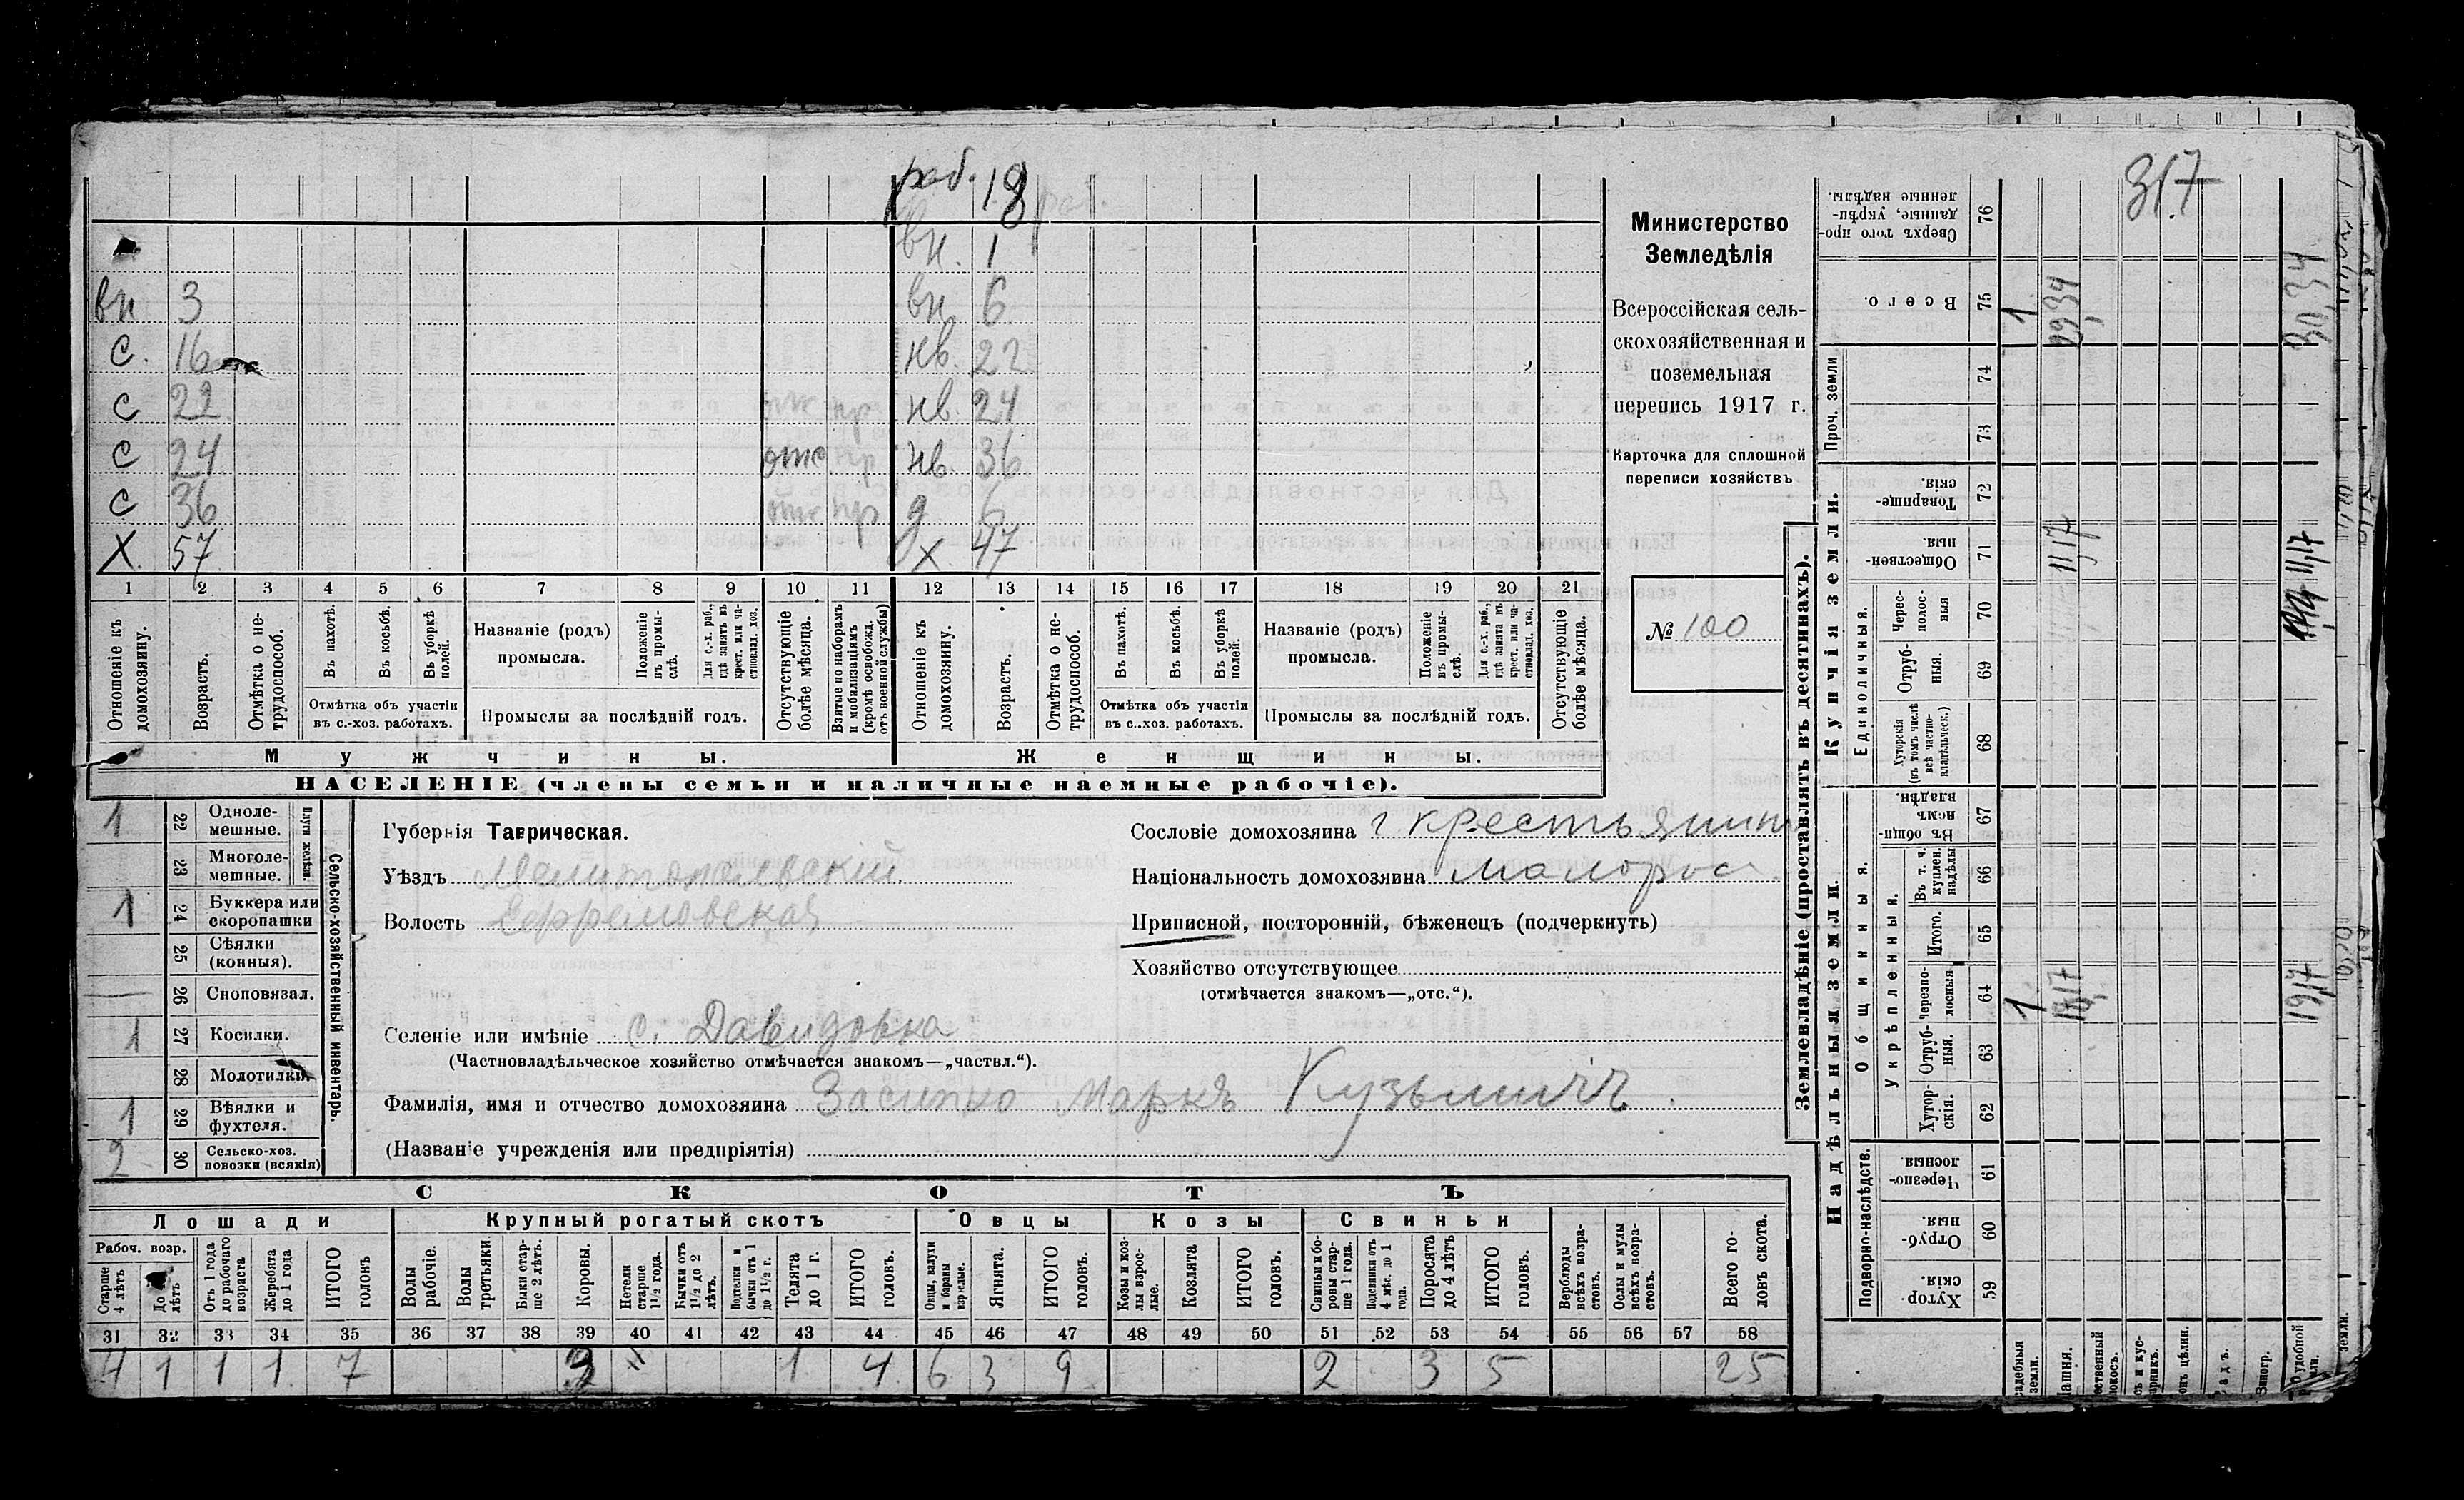 317
раб. 18
вн. 1
вн 3 вн 6
с. 16 нв. 22
с 22 пр нв. 24
с 24 отс пр нв. 36
с 36 отс пр д 6
х 57 х 47
1 2 3 4 5 6 7 8 9 10 11 12 13 14 15 16 17 18 19 20 21
Отношеніе къ домохозяину.
Возрастъ.
Отмѣтка о не-трудоспособ.
Въ пахотѣ.
Въ косьбѣ.
Въ уборкѣ полей.
Отмѣтка объ участіи
въ с.-хоз. работахъ.
Названіе (родъ)
промысла.
Положеніе въ промы-слѣ.
Для с.-х. раб., гдѣ занятъ въ крест. или ча-стновлад. хоз.
Промыслы за послѣдній годъ.
Отсутствующіе болѣе мѣсяца.
Взятые по наборамъ и мобилизаціямъ (кромѣ освобожд. отъ военной службы)
Отношеніе къ домохозяину.
Возрастъ.
Отмѣтка о не-трудоспособ.
Въ пахотѣ.
Въ косьбѣ.
Въ уборкѣ полей.
Отмѣтка объ участіи
въ с.-хоз. работахъ.
Названіе (родъ)
промысла.
Положеніе въ промы-слѣ.
Для с.-х. раб., гдѣ занята въ крест. или ча-стновлад. хоз.
Промыслы за послѣдній годъ.
Отсутствующіе болѣе мѣсяца.
Мужчины. Женщины.
НАСЕЛЕНІЕ (члены семьи и наличные наемные рабочіе).
Министерство
Земледѣлія
Всероссійская сель-
скохозяйственная и
поземельная
перепись 1917 г.
Карточка для сплошной
переписи хозяйствъ
№ 100
Сельско-хозяйственный инвентарь.
Плуги желѣзн.
1 22 Одноле-мешные.
23 Многоле-мешные.
1 24 Буккера или скоропашки
25 Сѣялки (конныя).
— 26 Сноповязал.
1 27 Косилки.
28 Молотилки.
1 29 Вѣялки и фухтеля.
2 30 Сельско-хоз. повозки (всякія)
Губернія Таврическая.
Уѣздъ Мелитопольскій
Волость Ефремовская
Селеніе или имѣніе с. Давидовка
(Частновладѣльческое хозяйство отмѣчается знакомъ—„частвл.“).
Фамилія, имя и отчество домохозяина Засипко Маркъ Кузьмичъ.
(Названіе учрежденія или предпріятія)
Сословіе домохозяина крестьянин
Національность домохозяина малорос
Приписной, посторонній, бѣженецъ (подчеркнуть)
Хозяйство отсутствующее
(отмѣчается знакомъ—„отс.“).
СКОТЪ
Лошади Крупный рогатый скотъ Овцы Козы Свиньи
Рабоч. возр.
Старше 4 лѣтъ
До 4 лѣтъ
Отъ 1 года до рабочаго возраста
Жеребята до 1 года
ИТОГО головъ
Волы рабочіе.
Волы третьяки.
Быки стар-ше 2 лѣтъ.
Коровы.
Нетели старше 1½ года.
Бычки отъ 1½ до 2 лѣтъ.
Подтелки и бычки отъ 1 до 1½ г.
Телята до 1 г.
ИТОГО головъ.
Овцы, валухи и бараны взрослые.
Ягнята.
ИТОГО головъ.
Козы и коз-лы взрос-лые.
Козлята
ИТОГО головъ.
Свиньи и бо-ровы стар-ше 1 года.
Подсвинки отъ 4 мѣс. до 1 года.
Поросята до 4 лѣтъ
ИТОГО головъ.
Верблюды всѣхъ возра-стовъ.
Ослы и мулы всѣхъ возра-стовъ.
Всего го-ловъ скота.
31 32 33 34 35 36 37 38 39 40 41 42 43 44 45 46 47 48 49 50 51 52 53 54 55 56 57 58
4 1 1 1 7 3 1 4 6 3 9 2 3 5 25
Землевладѣніе (проставлять въ десятинахъ).
Купчія земли.
Надѣльныя земли.
Сверхъ того про-данные, укрѣп-ленные надѣлы. 76
Всего. 75 1 29,34 30,34
Проч. земли 74
73
Товарище-скія. 72
Обществен-ныя. 71 11,17 11,17
Единоличныя.
Черес-полос-ныя 70
Отруб-ныя. 69
Хуторскія (въ томъ числѣ всѣ частно-владѣльческ.) 68
Общинныя.
Въ общин-номъ владѣн. 67
Укрѣпленныя.
Въ т. ч. куплен. надѣлы 66
Итого. 65
Черезпо-лосныя 64 1 18,17 19,17
Отруб-ныя. 63
Хутор-скія. 62
Подворно-наслѣдств.
Черезпо-лосныя. 61
Отруб-ныя. 60
Хутор-скія. 59